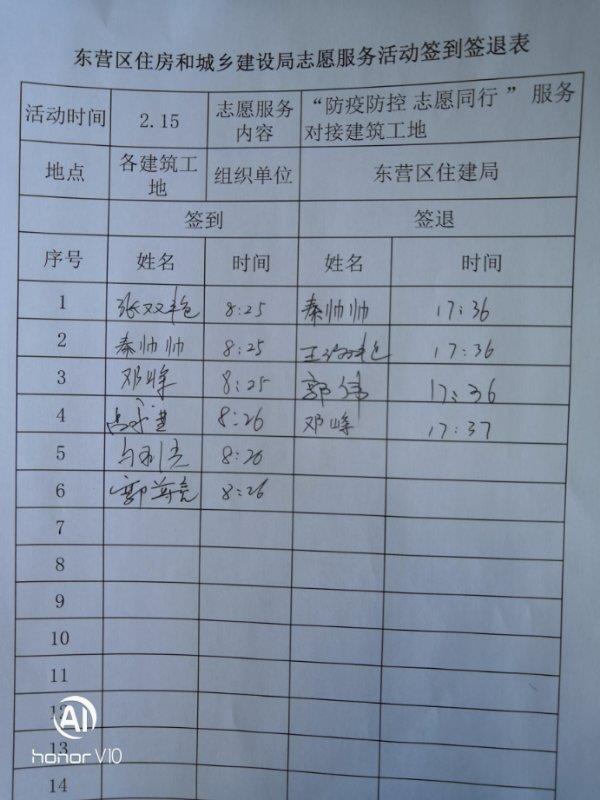 东营区住房和城乡建设局志愿服务活动签到签退表
活动时间 2.15 志愿服务内容 “防疫防控 志愿同行 ” 服务对接建筑工地
地点 各建筑工地 组织单位 东营区住建局
签到 签退
序号 姓名 时间 姓名 时间
1 8:25 秦帅帅 17:36
2 秦帅帅 8:25 17:36
3 邓峰 8:25 郭伟 17:36
4 8:26 邓峰 17:37
5 8:26
6 8:26
7
8
9
10
11
12
13
14
AI
honor V10